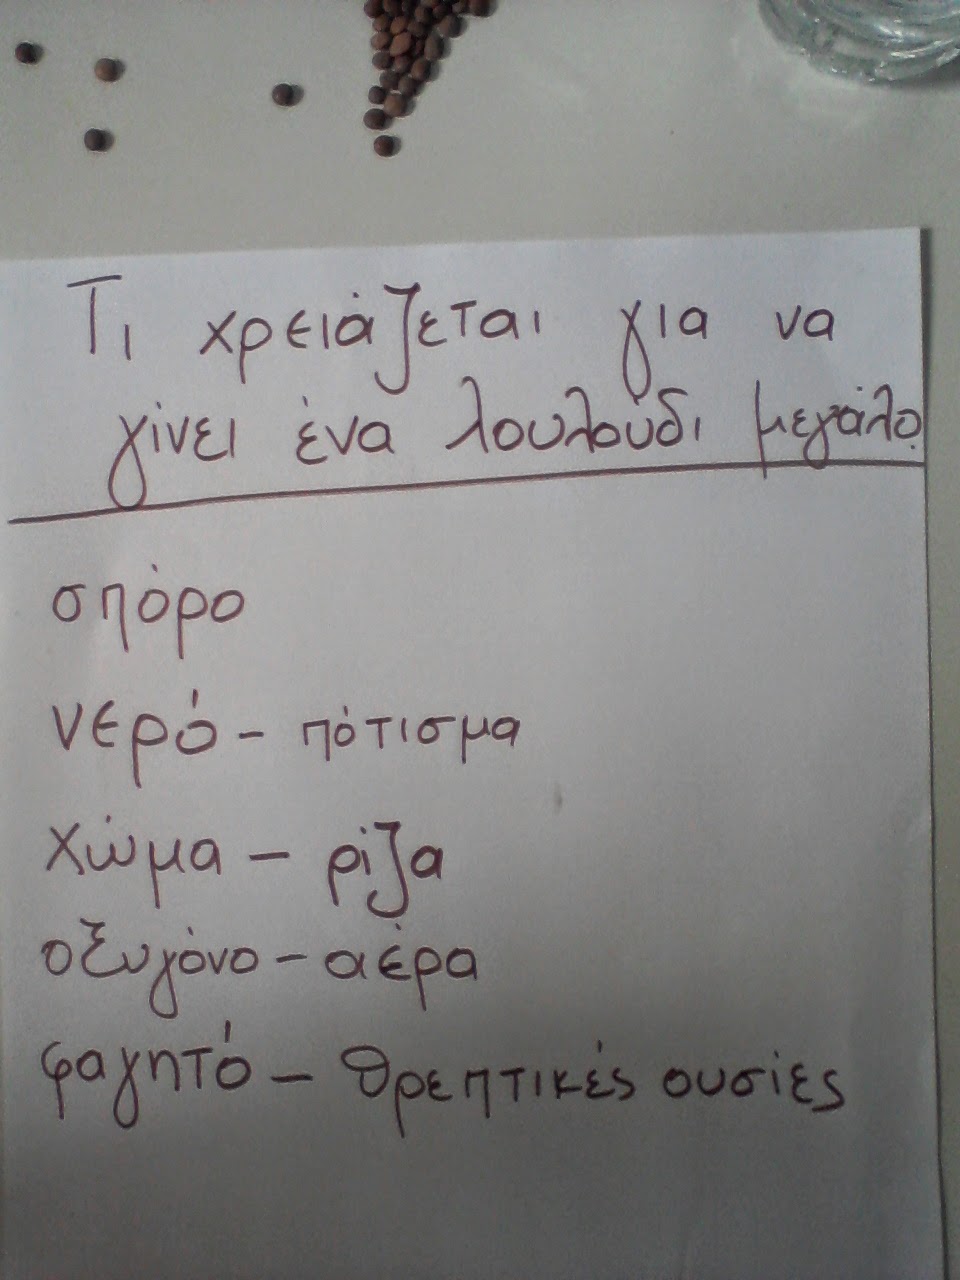 Τι χρειάζεται για να
γίνει ένα λουλούδι μεγάλο
σπόρο
νερό - πότισμα
χώμα - ρίζα
οξυγόνο - αέρα
φαγητό - θρεπτικές ουσίες